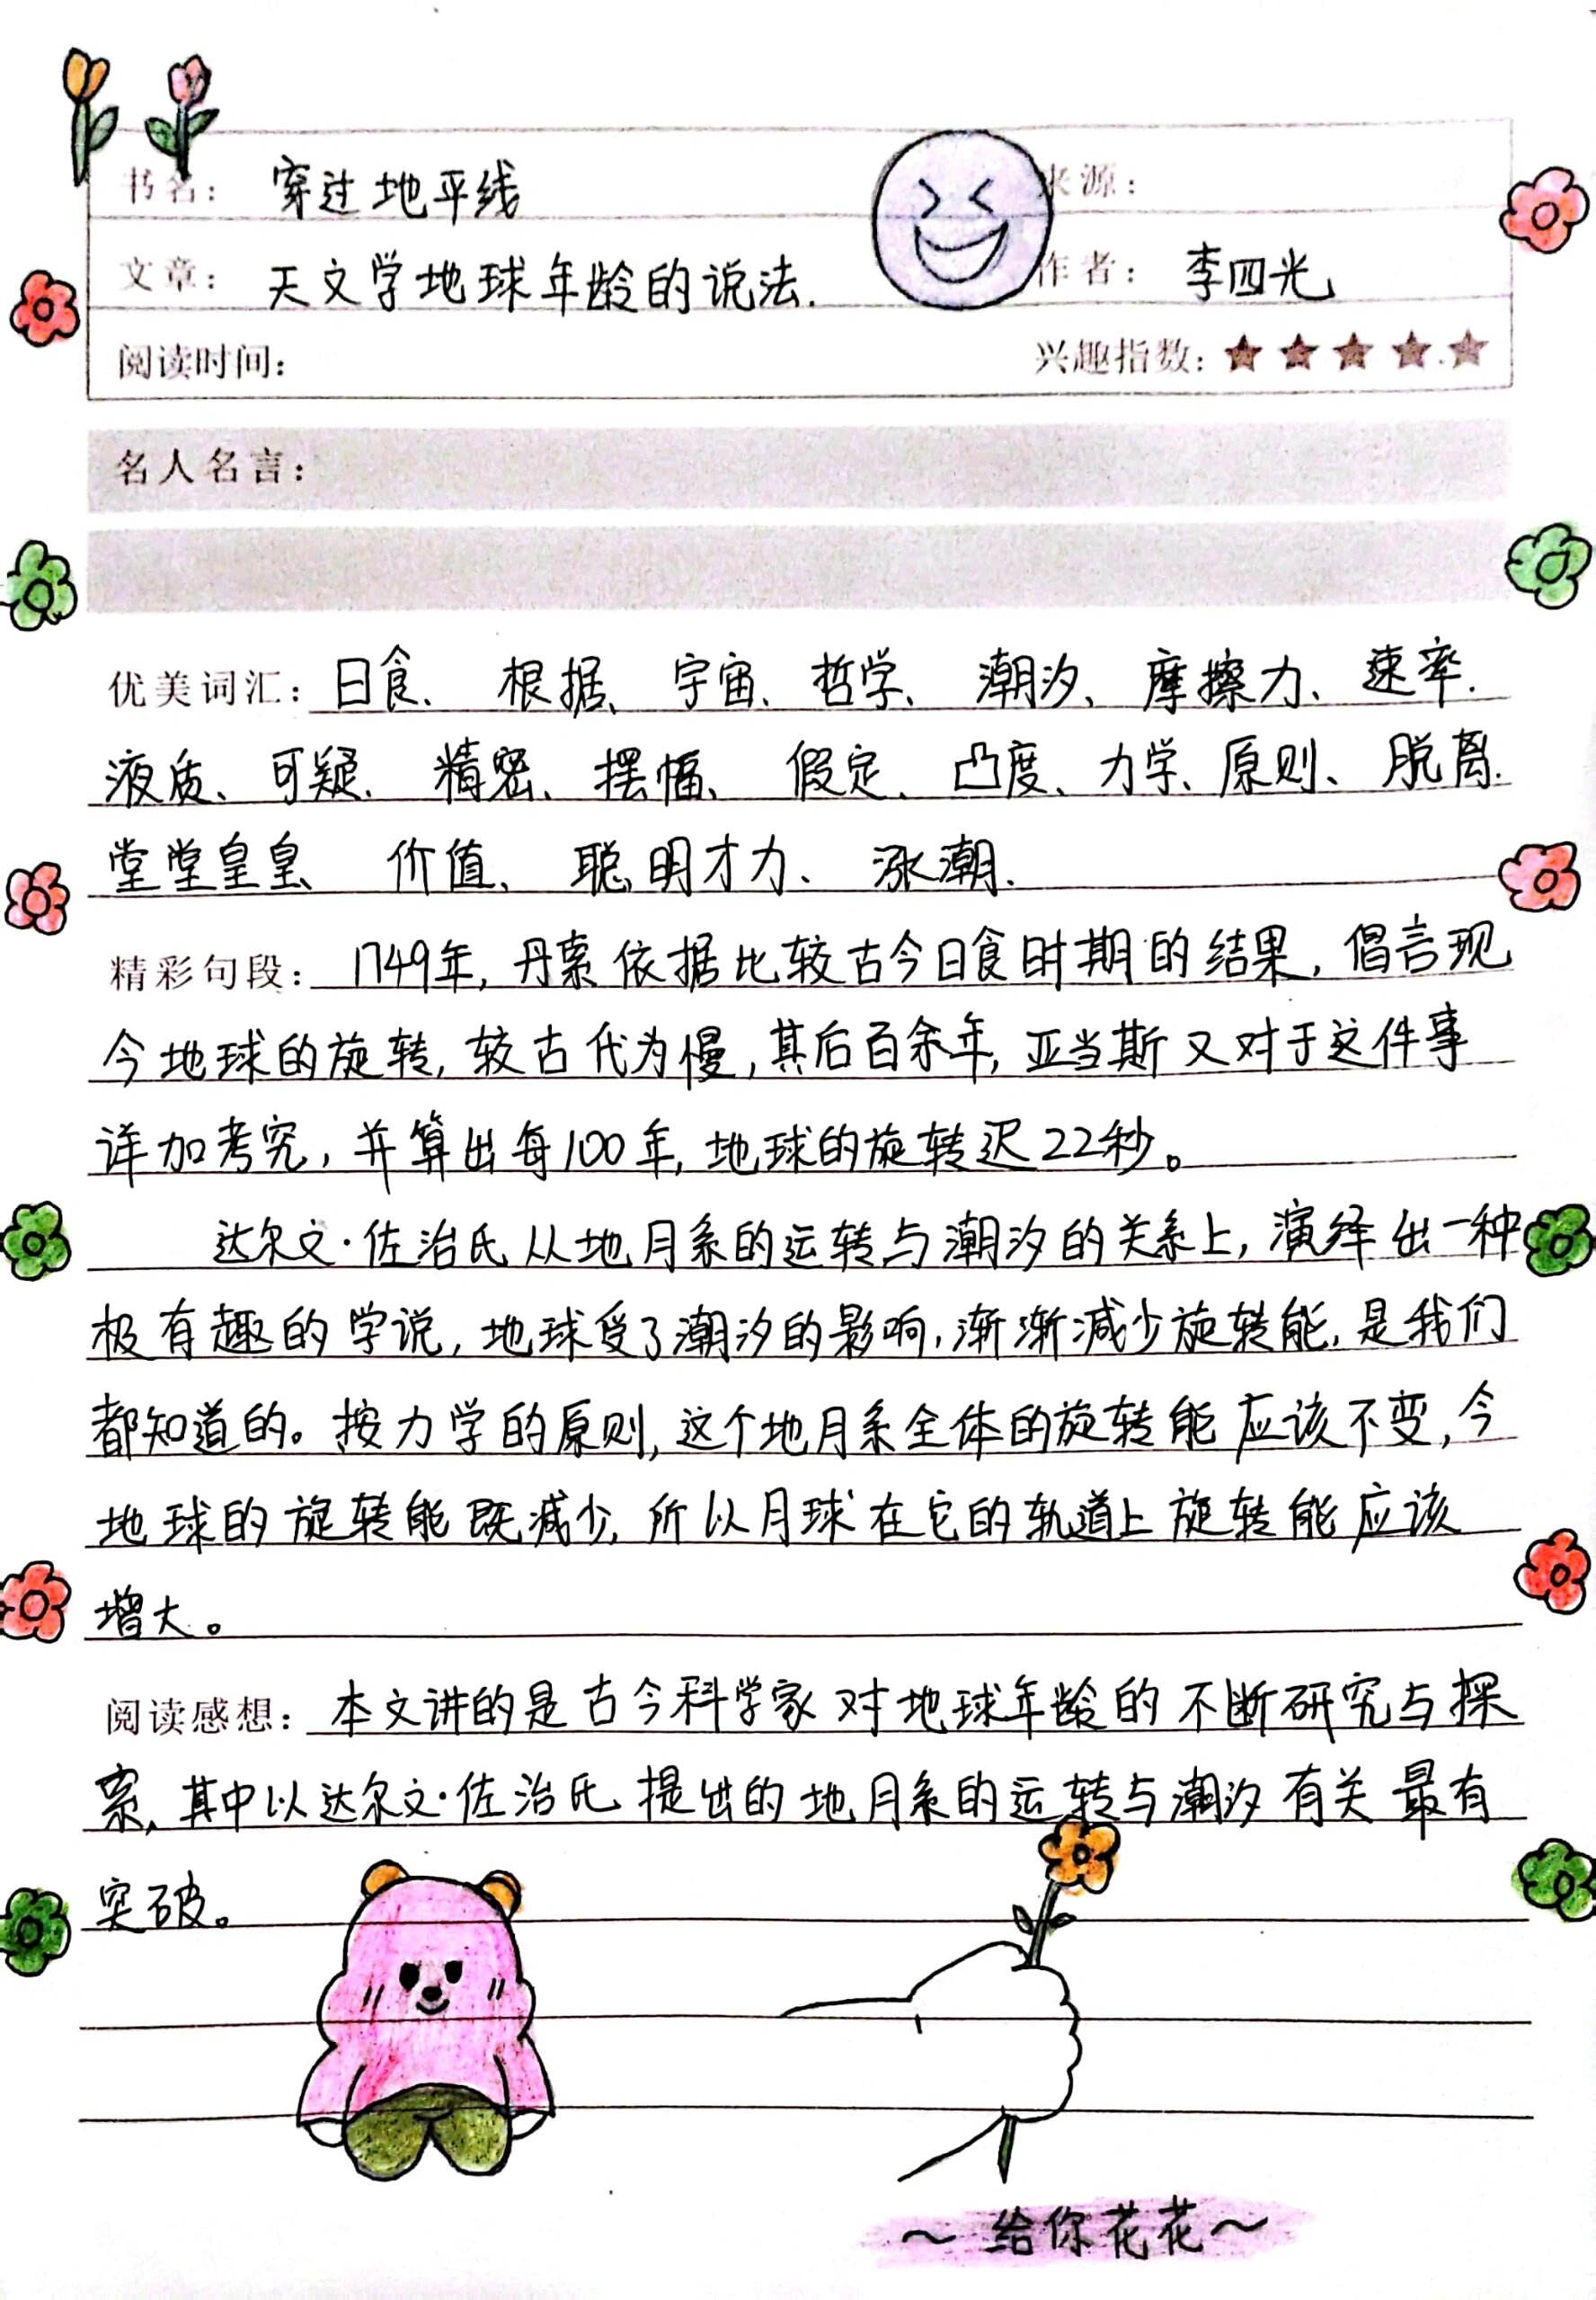 书名： 穿过地平线 来源：
文章： 天文学地球年龄的说法. 作者： 李四光
阅读时间： 兴趣指数：★★★★★
名人名言：
优美词汇： 日食、 根据、 宇宙、 哲学、 潮汐、 摩擦力、 速率.
液质、 可疑、 精密、 摆幅、 假定、 凸度、 力学、 原则、 脱离.
堂堂皇皇、 价值、 聪明才力、 涨潮.
精彩句段： 1749年，丹索依据比较古今日食时期的结果，倡言现
今地球的旋转，较古代为慢，其后百余年，亚当斯又对于这件事
详加考究，并算出每100年，地球的旋转迟22秒。
达尔文·佐治氏从地月系的运转与潮汐的关系上，演绎出一种
极有趣的学说，地球受了潮汐的影响，渐渐减少旋转能，是我们
都知道的。按力学的原则，这个地月系全体的旋转能应该不变，今
地球的旋转能既减少，所以月球在它的轨道上旋转能应该
增大。
阅读感想： 本文讲的是古今科学家对地球年龄的不断研究与探
索，其中以达尔文·佐治氏提出的地月系的运转与潮汐有关最有
突破。
～给你花花～